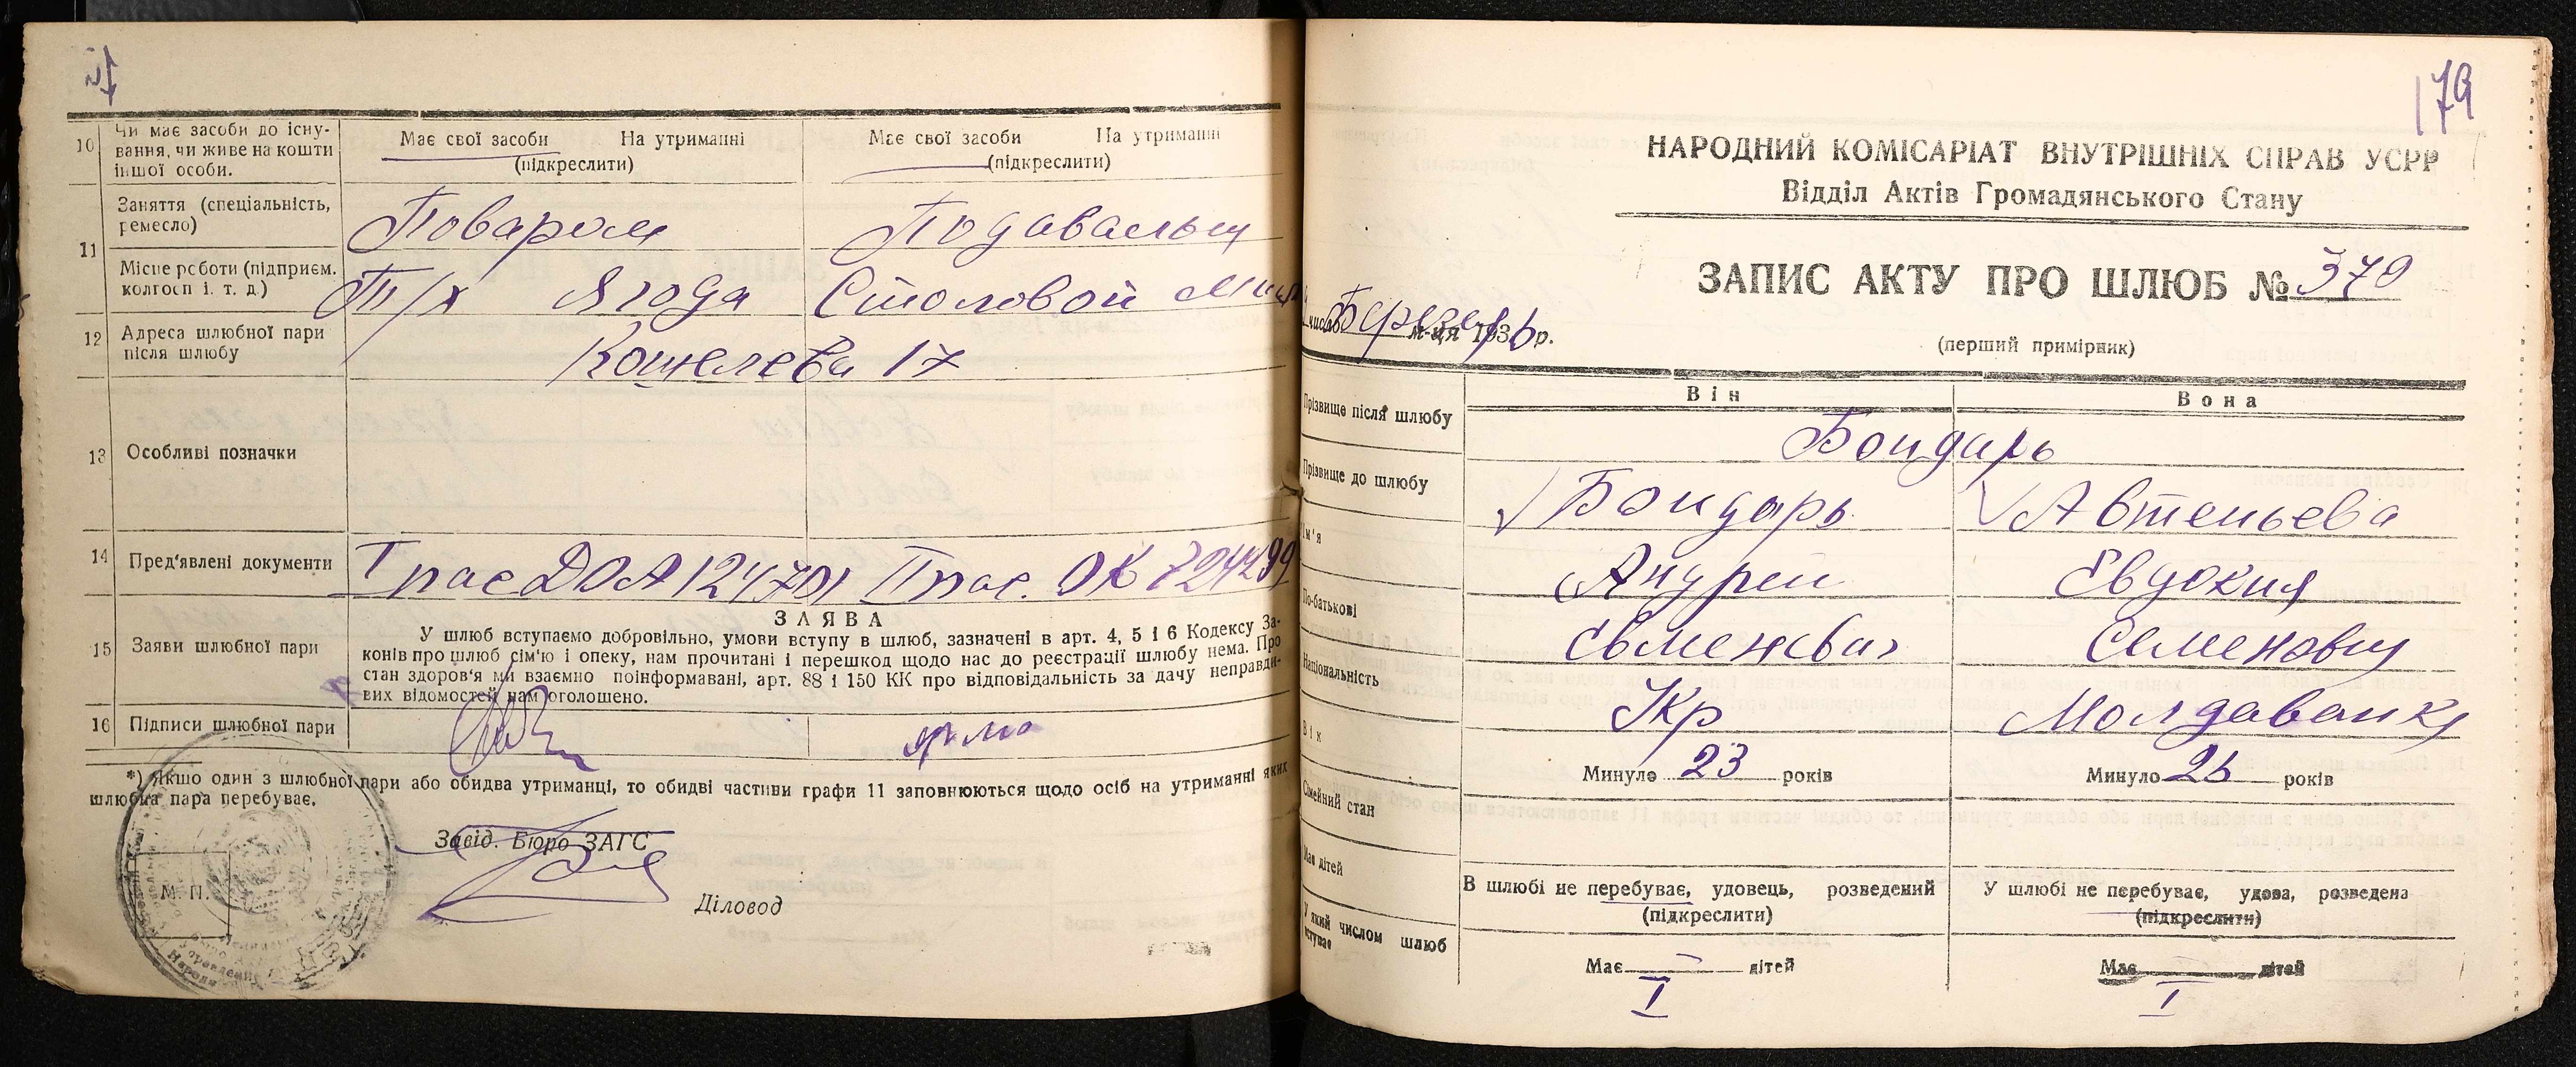 10 Чи має засоби до існу-
вання, чи живе на кошти
іншої особи.
Має свої засоби На утриманні
(підкреслити)
Має свої засоби На утриманні
(підкреслити)
11
Заняття (спеціальність,
ремесло)
Поваром
Подавальщ
Місце роботи (підприєм.
колгосп і. т. д.)
Т/х Ягода
Столовой
12 Адреса шлюбної пари
після шлюбу
Кошелева 17
13 Особливі позначки
14 Пред'явлені документи
I пас ДОА 124701 II пас. ОК 724299
15 Заяви шлюбної пари
ЗАЯВА
У шлюб вступаємо добровільно, умови вступу в шлюб, зазначені в арт. 4, 5 і 6 Кодексу За-
конів про шлюб сім'ю і опеку, нам прочитані і перешкод щодо нас до реєстрації шлюбу нема. Про
стан здоров'я ми взаємно поінформавані, арт. 88 і 150 КК про відповідальність за дачу неправди-
вих відомостей нам оголошено.
16 Підписи шлюбної пари
*) Якщо один з шлюбної пари або обидва утриманці, то обидві частини графи 11 заповнюються щодо осіб на утриманні яких
шлюбна пара перебуває.
Завід. Бюро ЗАГС
М. П.
Діловод
179
НАРОДНИЙ КОМІСАРІАТ ВНУТРІШНІХ СПРАВ УСРР
Відділ Актів Громадянського Стану
ЗАПИС АКТУ ПРО ШЛЮБ № 370
число м-ця 1936 р.
(перший примірник)
Він
Вона
Прізвище після шлюбу
Бондарь
Прізвище до шлюбу
Бондарь
Автеньева
Ім'я
Андрей
Евдокия
По-батькові
Евменєвич
Семеновну
Національність
Укр
Молдаванка
Вік
Минуло 23 років
Минуло 26 років
Сімейний стан
В шлюбі не перебуває, удовець, розведений
(підкреслити)
У шлюбі не перебуває, удова, розведена
(підкреслити)
Має дітей
Має — дітей
Має — дітей
У який числом шлюб
вступає
I
I